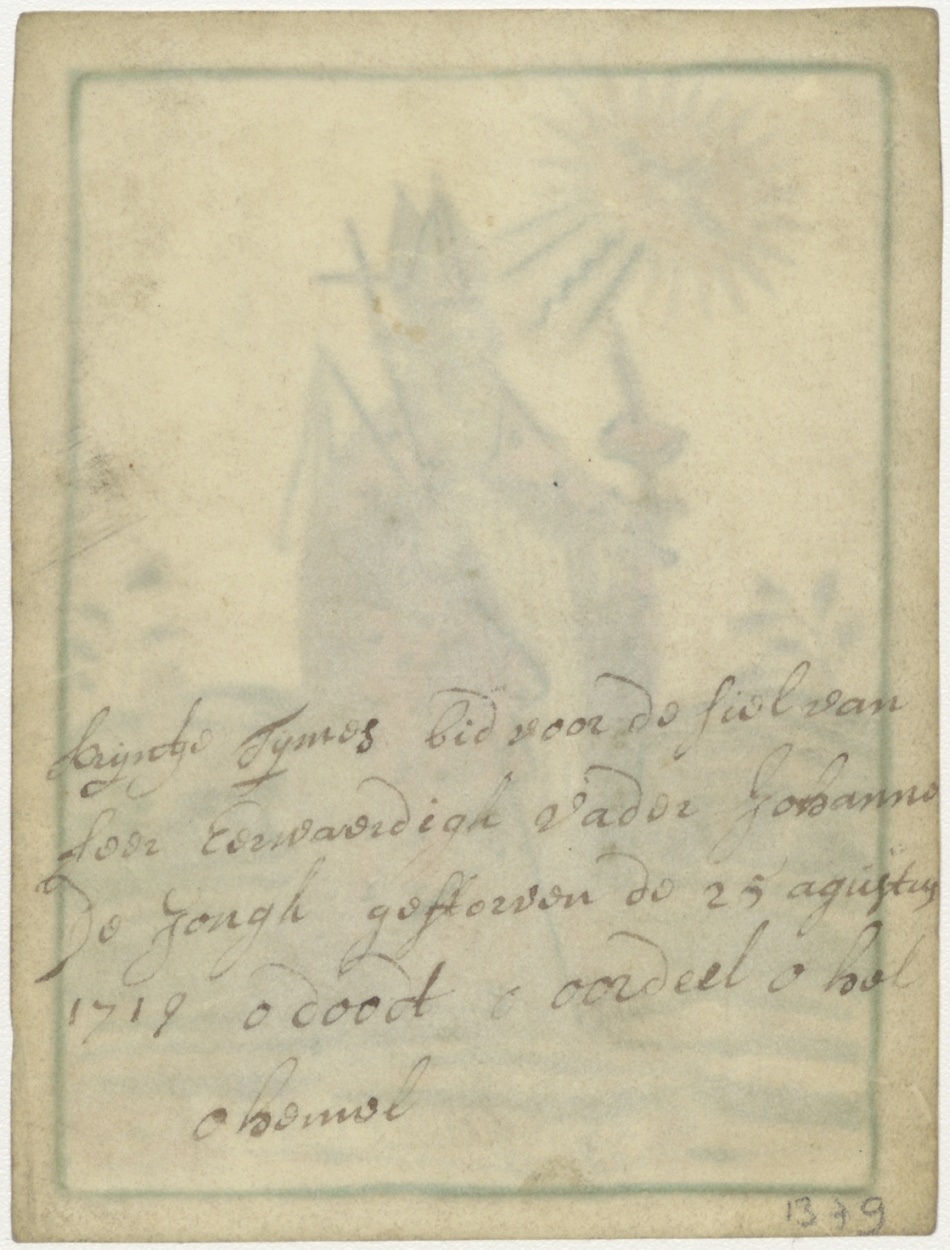 Krijntje Tymes bid voor de siel van
seer Eerwaerdigh Vader Johanne
De Jongh gestorven de 25 agustus
1719 o doodt o oordeel o hel
o hemel
1379